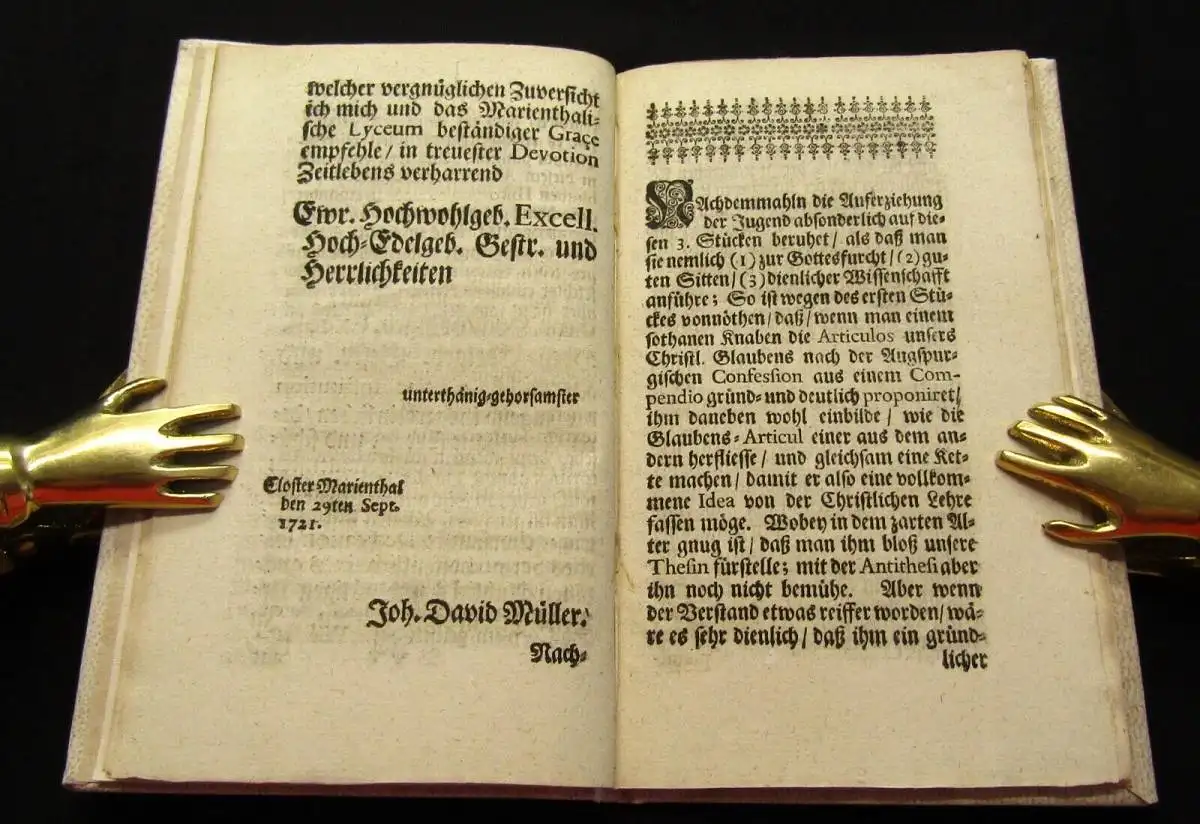 welcher vergnüglichen Zuversicht
ich mich und das Marienthali-
sche Lyceum beständiger Grace
empfehle / in treuester Devotion
Zeitlebens verharrend
Ewr. Hochwohlgeb. Excell.
Hoch-Edelgeb. Gestr. und
Herrlichkeiten
unterthänig-gehorsamster
Closter Marienthal
den 29ten Sept.
1721.
Joh. David Müller.
Nach-
NAchdemmahln die Auferziehung
der Jugend absonderlich auf die-
sen 3. Stücken beruhet / als daß man
sie nemlich (1) zur Gottesfurcht / (2) gu-
ten Sitten / (3) dienlicher Wissenschafft
anführe; So ist wegen des ersten Stü-
ckes vonnöthen / daß / wenn man einem
sothanen Knaben die Articulos unsers
Christl. Glaubens nach der Augspur-
gischen Confession aus einem Com-
pendio gründ- und deutlich proponiret /
ihm daneben wohl einbilde / wie die
Glaubens-Articul einer aus dem an-
dern herfliesse / und gleichsam eine Ket-
te machen / damit er also eine vollkom-
mene Idea von der Christlichen Lehre
fassen möge. Wobey in dem zarten Al-
ter gnug ist / daß man ihm bloß unsere
Thesin fürstelle; mit der Antithesi aber
ihn noch nicht bemühe. Aber wenn
der Verstand etwas reiffer worden / wä-
re es sehr dienlich / daß ihm ein gründ-
licher